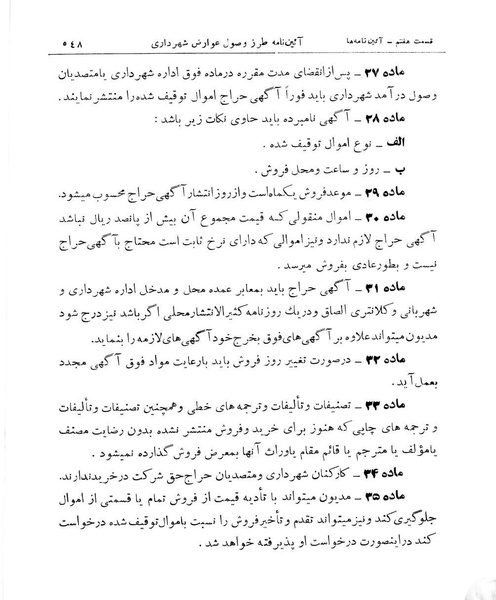 قسمت هفتم ــ آئین‌نامه‌ها
آئین‌نامه طرز وصول عوارض شهرداری
۵۴۸
ماده ۲۷ ــ پس از انقضای مدت مقرره در ماده فوق اداره شهرداری یا متصدیان
وصول در آمد شهرداری باید فوراً آگهی حراج اموال توقیف شده را منتشر نمایند.
ماده ۲۸ ــ آگهی نامبرده باید حاوی نکات زیر باشد :
الف ــ نوع اموال توقیف شده .
ب ــ روز و ساعت و محل فروش .
ماده ۲۹ ــ موعد فروش یکماه است و از روز انتشار آگهی حراج محسوب میشود.
ماده ۳۰ ــ اموال منقولی که قیمت مجموع آن بیش از پانصد ریال نباشد
آگهی حراج لازم ندارد و نیز اموالی که دارای نرخ ثابت است محتاج بآگهی حراج
نیست و بطور عادی بفروش میرسد .
ماده ۳۱ ــ آگهی حراج باید بمعابر عمده محل و مدخل اداره شهرداری و
شهربانی و کلانتری الصاق و در یك روزنامه کثیرالانتشار محلی اگر باشد نیز درج شود
مدیون میتواند علاوه بر آگهی‌های فوق بخرج خود آگهی‌های لازمه را بنماید.
ماده ۳۲ ــ در صورت تغییر روز فروش باید با رعایت مواد فوق آگهی مجدد
بعمل آید .
ماده ۳۳ ــ تصنیفات و تألیفات و ترجمه های خطی و همچنین تصنیفات و تألیفات
و ترجمه های چاپی که هنوز برای خرید و فروش منتشر نشده بدون رضایت مصنف
یا مؤلف یا مترجم یا قائم مقام یا وراث آنها بمعرض فروش گذارده نمیشود .
ماده ۳۴ ــ کارکنان شهرداری و متصدیان حراج حق شرکت در خرید ندارند.
ماده ۳۵ ــ مدیون میتواند با تأدیه قیمت از فروش تمام یا قسمتی از اموال
جلوگیری کند و نیز میتواند تقدم و تأخیر فروش را نسبت باموال توقیف شده درخواست
کند در اینصورت درخواست او پذیرفته خواهد شد .